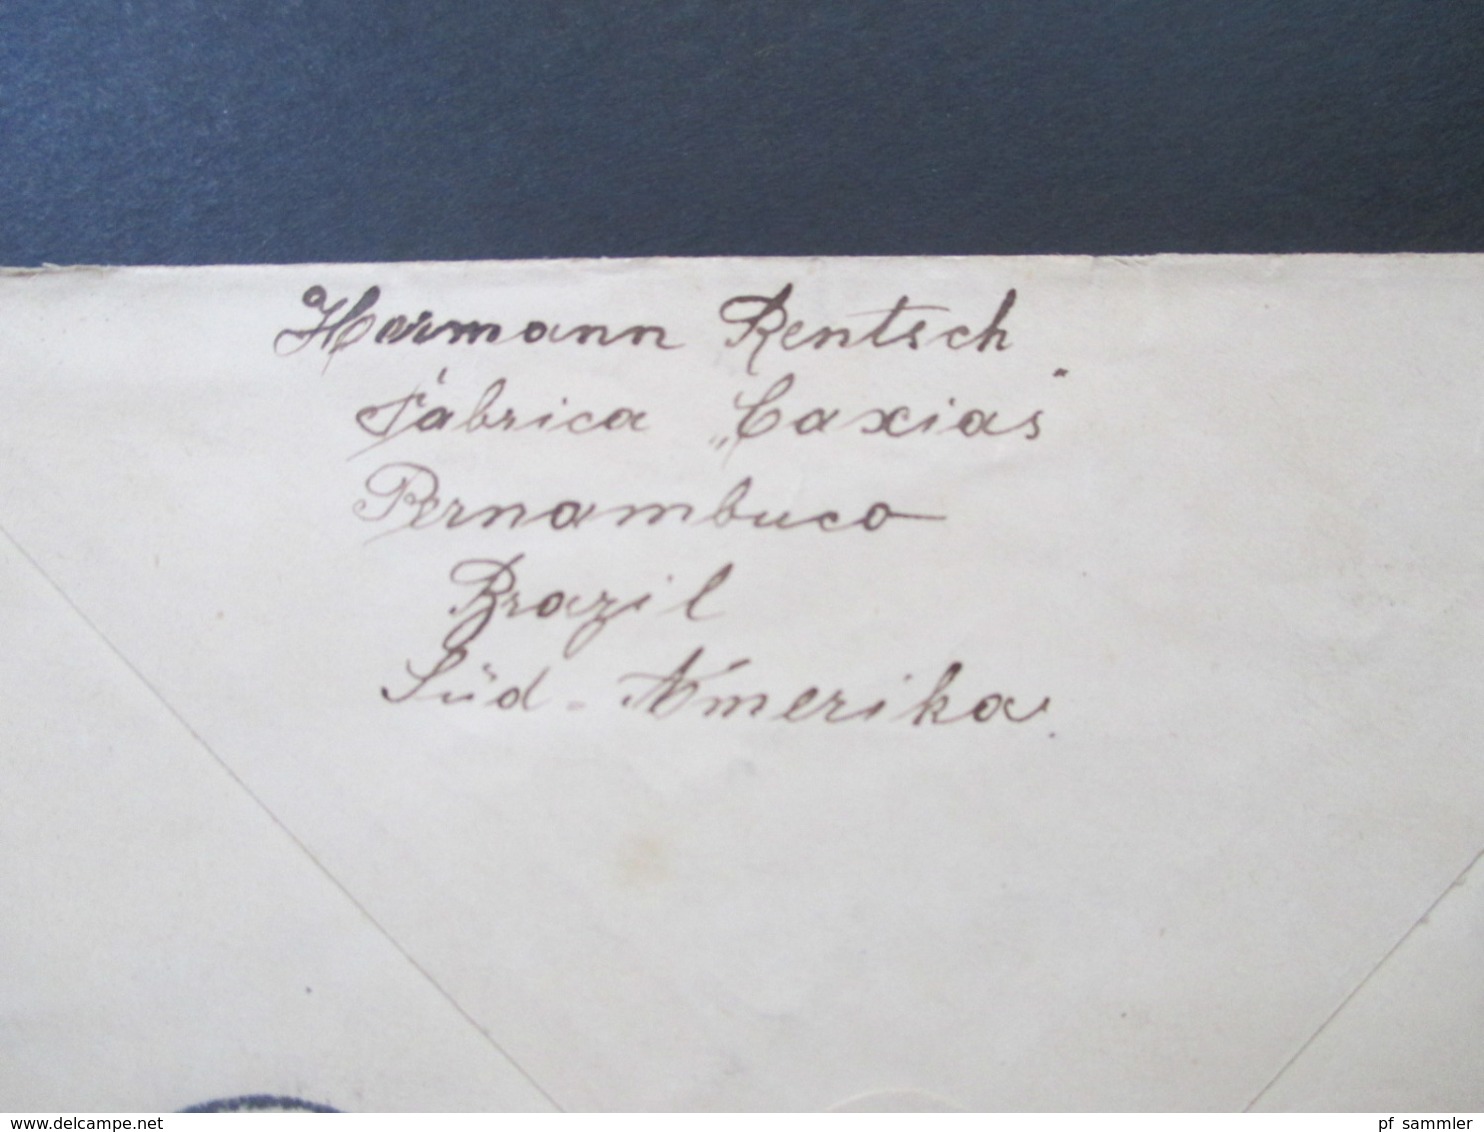 Hermann Rentsch
Fábrica „Caxias"
Pernambuco
Brazil
Süd-Amerika.
delcampe.net
pf_sammler